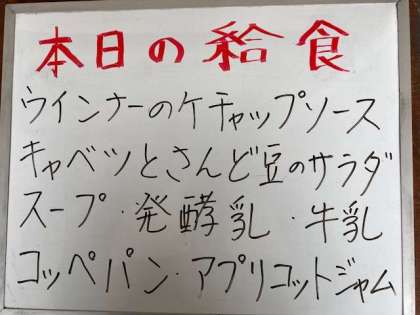 本日の給食
ウインナーのケチャップソース
キャベツとさんど豆のサラダ
スープ・発酵乳・牛乳
コッペパン・アプリコットジャム